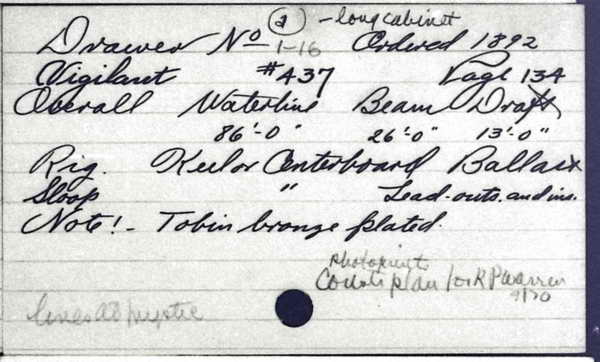 (a) - long cabinet
Drawer No 1-16 Ordered 1892
Vigilant #437 Page 134
Overall Waterline Beam Draft
86'-0" 26'-0" 13'-0"
Rig. Keel or Centerboard Ballast
Sloop " Lead-outs. and ins.
Note! - Tobin bronze plated.
photoprint
Const. plan for R P Warren
9/70
lines at Mystic